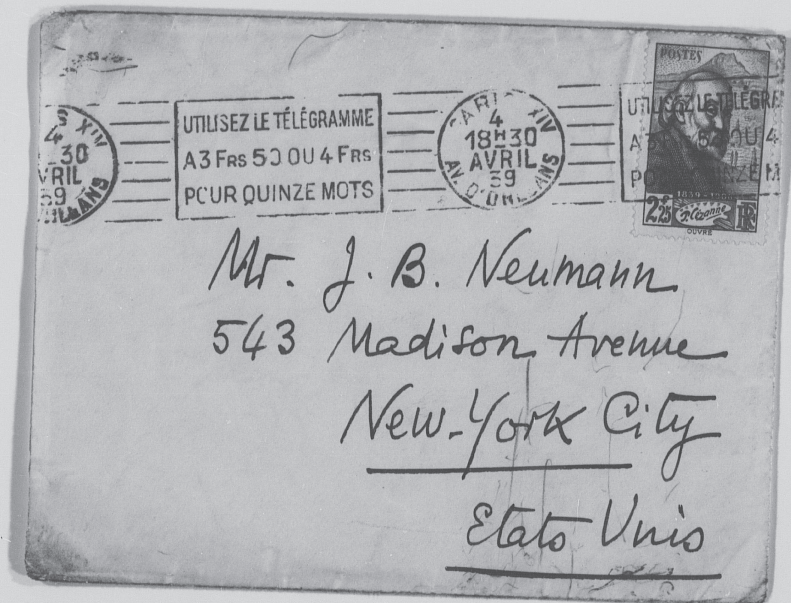 S XIV
4
30
VRIL
39
RLEANS
UTILISEZ LE TÉLÉGRAMME
A 3 FRS 50 OU 4 FRS
POUR QUINZE MOTS
PARIS XIV
4
18H30
AVRIL
39
AV. D'ORLEANS
POSTES
UTILISEZ LE TÉLÉGR
A 3 50 OU 4
PO INZE M
2F25
P. Cézanne
RF
OUVRÉ
Mr. J. B. Neumann
543 Madison Avenue
New-York City
Etats Unis